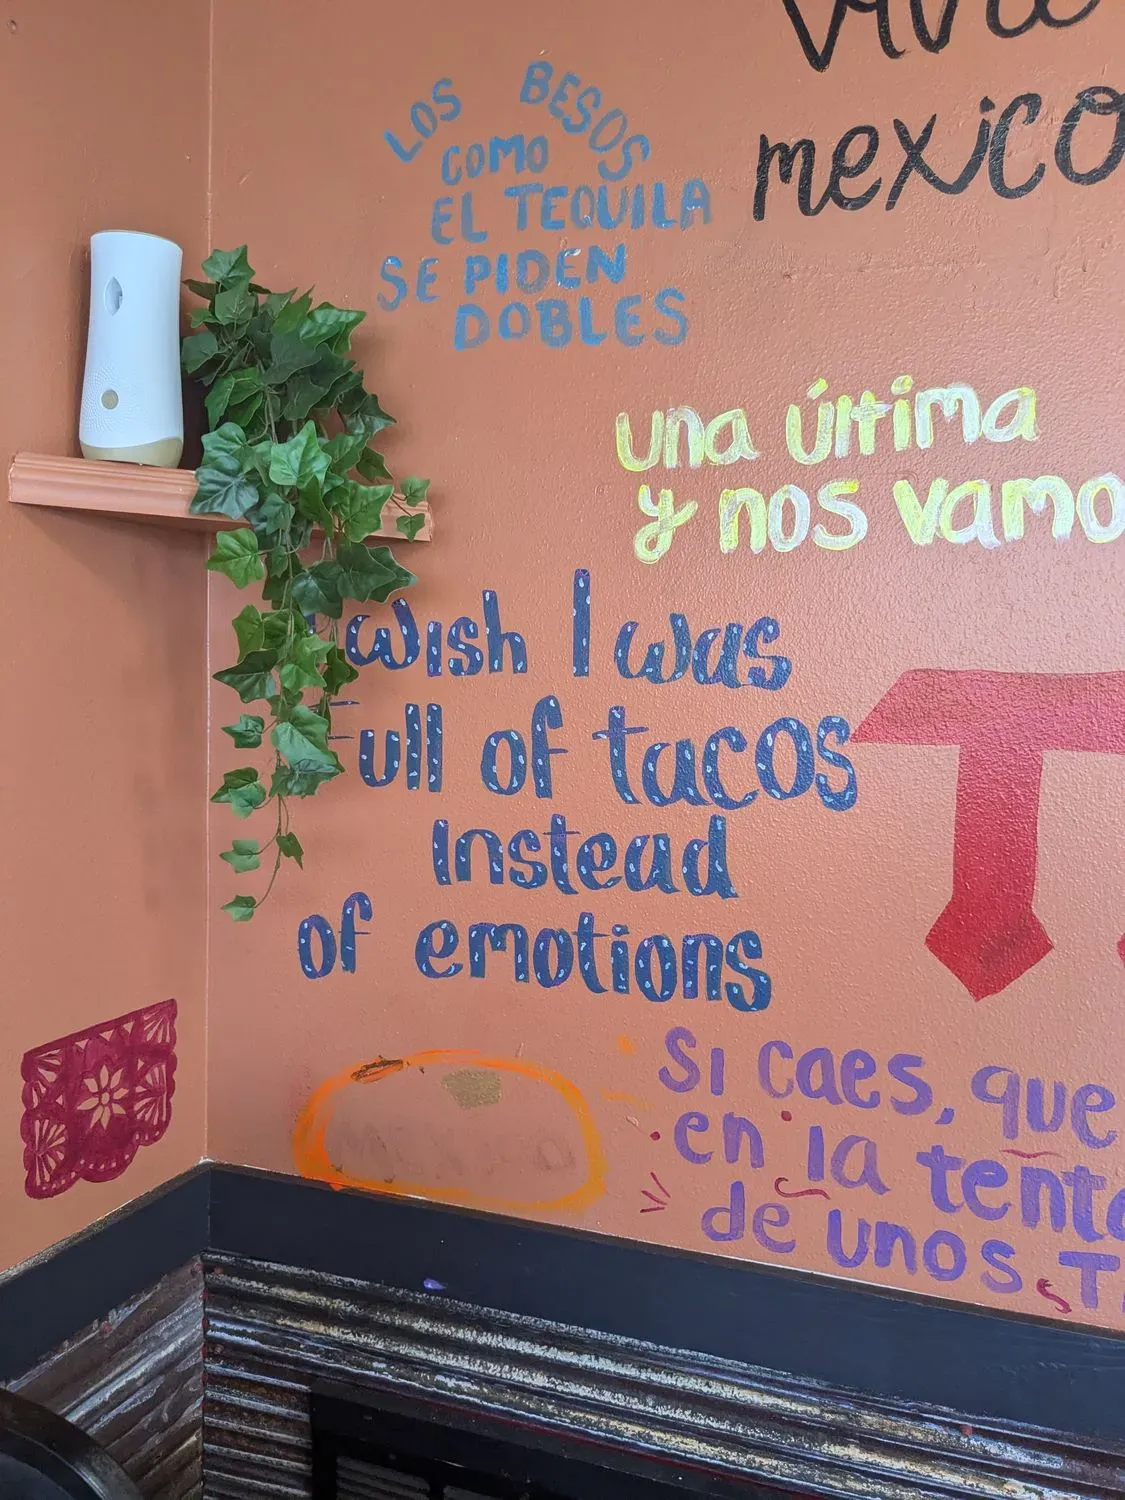 Viva
mexico
LOS BESOS
COMO
EL TEQUILA
SE PIDEN
DOBLES
una última
y nos vamo
I wish I was
Full of tacos
Instead
of emotions
Si caes, que
en la tenta
de unos T